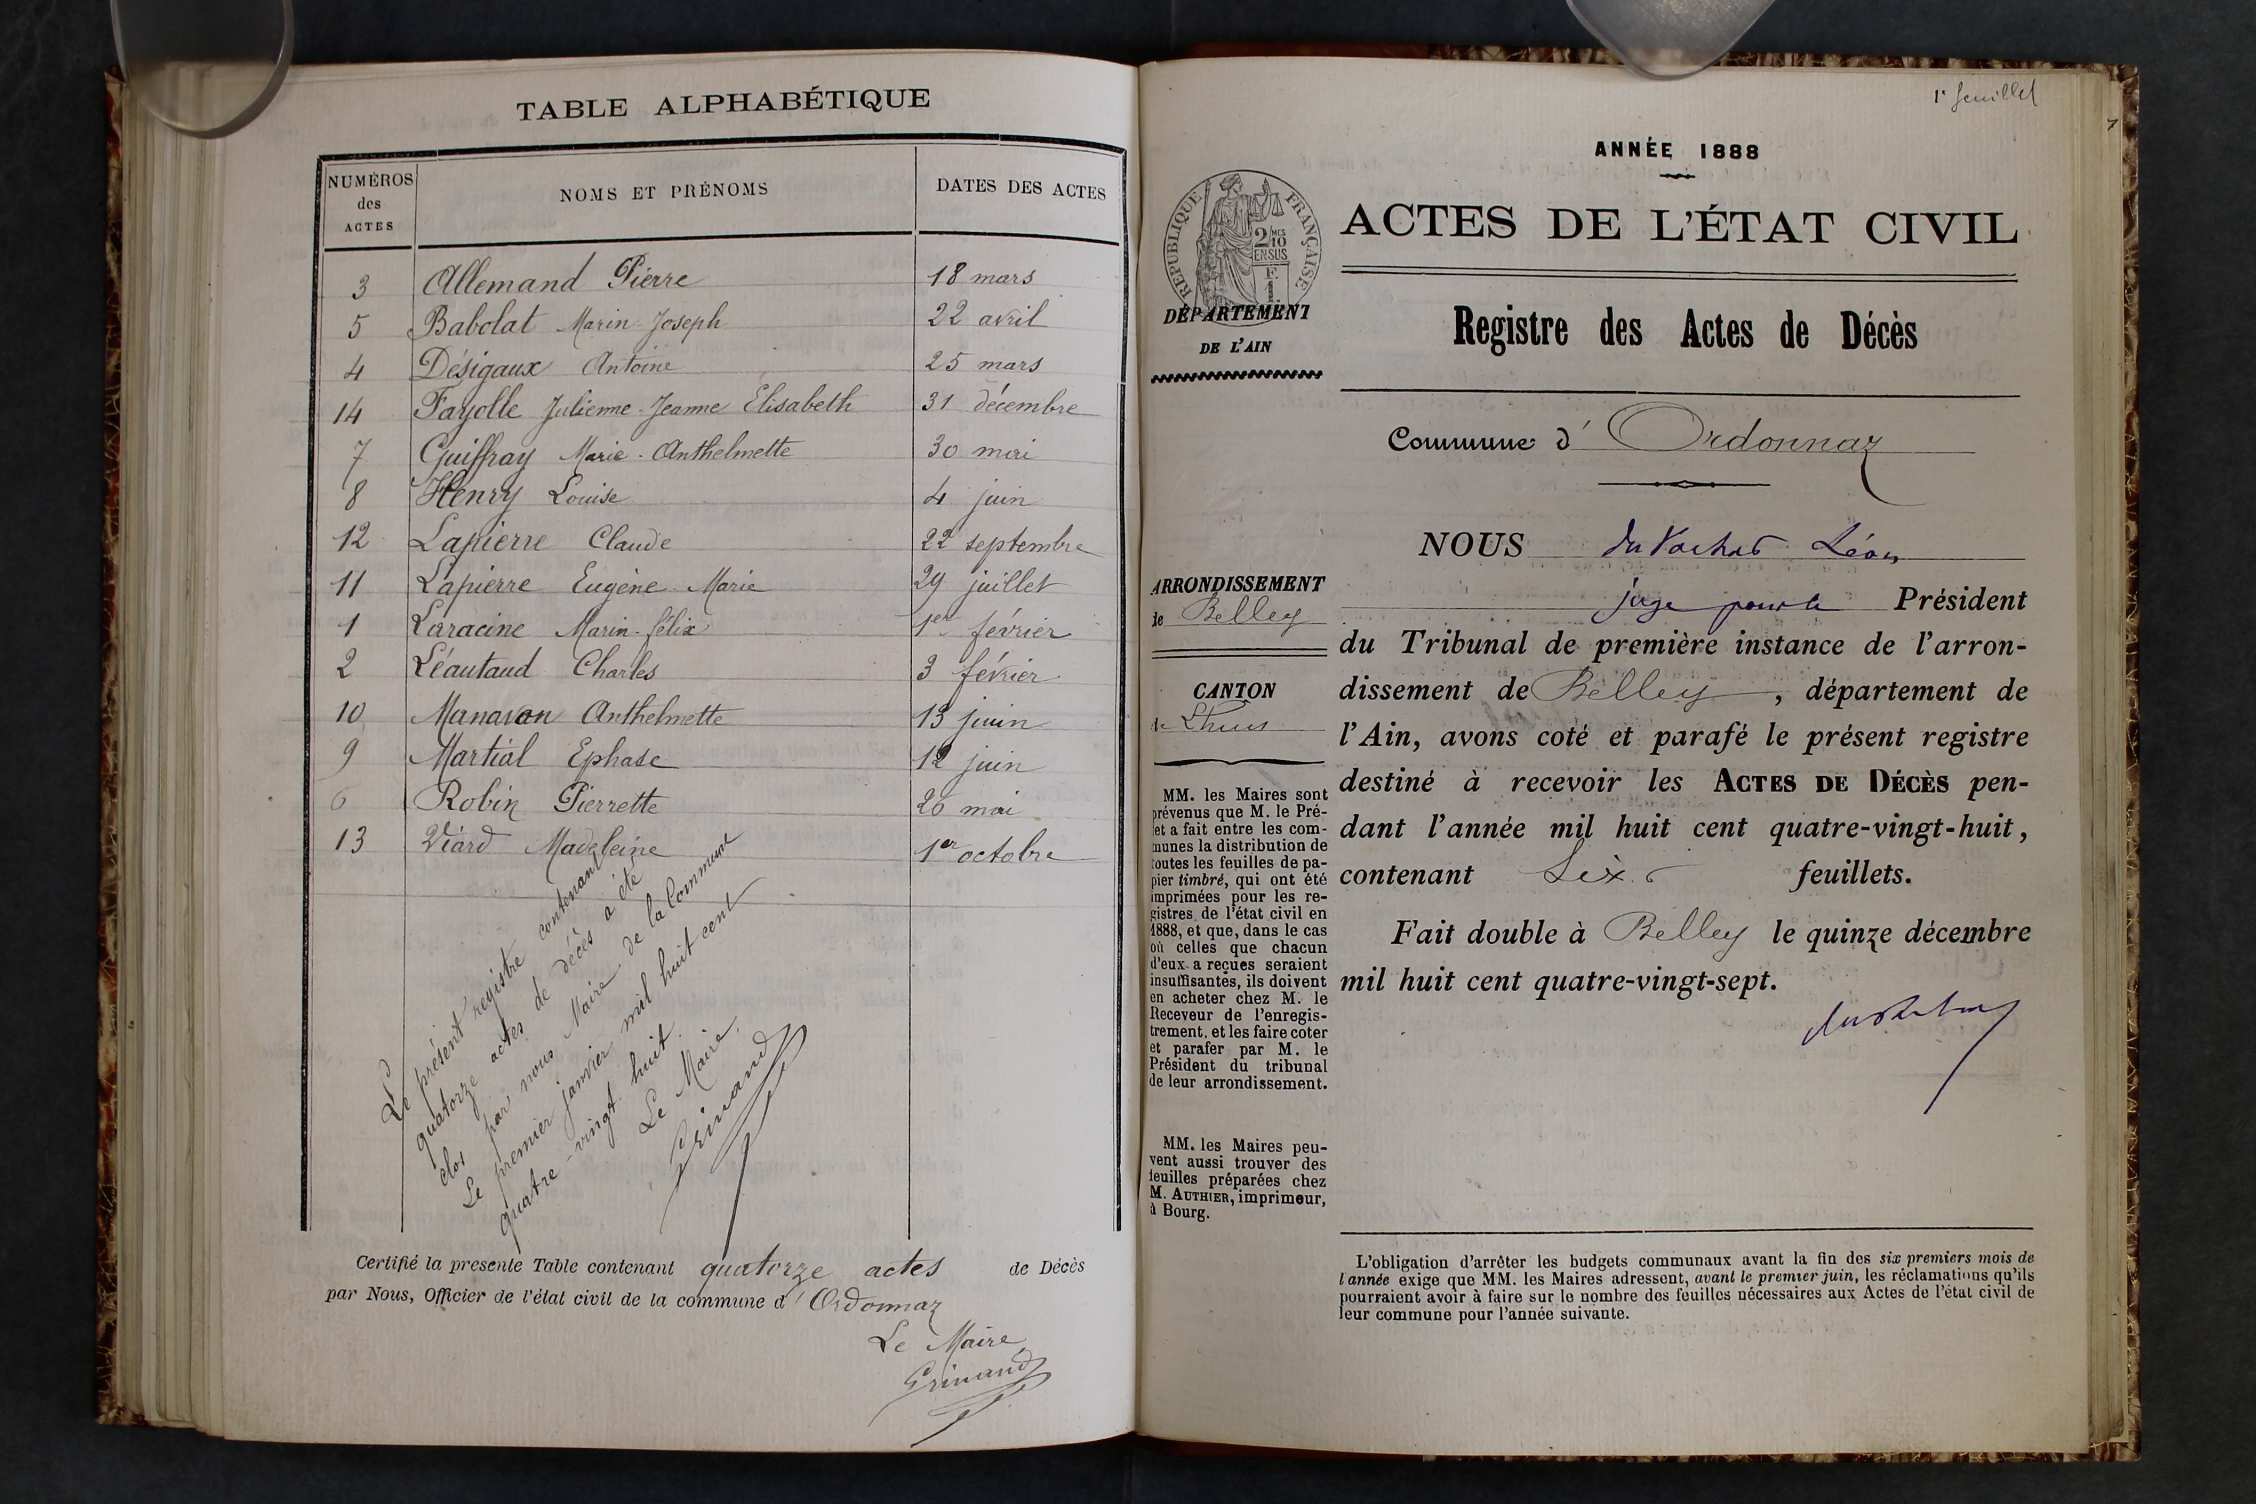 TABLE ALPHABÉTIQUE
NUMÉROS des ACTES
NOMS ET PRÉNOMS
DATES DES ACTES
3 Allemand Pierre 18 mars
5 Babolat Marin-Joseph 22 avril
4 Désigaux Antoine 25 mars
14 Fayolle Julienne-Jeanne Elisabeth 31 décembre
7 Guiffray Marie-Anthelmette 30 mai
8 Henry Louise 4 juin
12 Lapierre Claude 22 septembre
11 Lapierre Eugène-Marie 29 juillet
1 Laracine Marin-félix 1er février
2 Léautaud Charles 3 février
10 Manavon Anthelmette 13 juin
9 Martial Ephase 12 juin
6 Robin Pierrette 26 mai
13 Viard Madeleine 1er octobre
Le présent registre contenant
quatorze actes de décès a été
clos par nous Maire de la Commune
Le premier janvier mil huit cent
quatre-vingt huit.
Le Maire,
Grinand
Certifié la présente Table contenant quatorze actes de Décès
par Nous, Officier de l'état civil de la commune d'Ordonnaz
Le Maire
Grinand
1er feuillet
ANNÉE 1888
RÉPUBLIQUE FRANÇAISE
2/10 EN SUS
F. 1
ACTES DE L'ÉTAT CIVIL
DÉPARTEMENT
DE L'AIN
Registre des Actes de Décès
Commune d'Ordonnaz
ARRONDISSEMENT
de Belley
CANTON
de Lhuis
MM. les Maires sont
prévenus que M. le Pré-
fet a fait entre les com-
munes la distribution de
toutes les feuilles de pa-
pier timbré, qui ont été
imprimées pour les re-
gistres de l'état civil en
1888, et que, dans le cas
où celles que chacun
d'eux a reçues seraient
insuffisantes, ils doivent
en acheter chez M. le
Receveur de l'enregis-
trement, et les faire coter
et parafer par M. le
Président du tribunal
de leur arrondissement.
MM. les Maires peu-
vent aussi trouver des
feuilles préparées chez
M. AUTHIER, imprimeur,
à Bourg.
NOUS Léon
juge pour le Président
du Tribunal de première instance de l'arron-
dissement de Belley, département de
l'Ain, avons coté et parafé le présent registre
destiné à recevoir les ACTES DE DÉCÈS pen-
dant l'année mil huit cent quatre-vingt-huit,
contenant Six feuillets.
Fait double à Belley le quinze décembre
mil huit cent quatre-vingt-sept.
L'obligation d'arrêter les budgets communaux avant la fin des six premiers mois de
l'année exige que MM. les Maires adressent, avant le premier juin, les réclamations qu'ils
pourraient avoir à faire sur le nombre des feuilles nécessaires aux Actes de l'état civil de
leur commune pour l'année suivante.